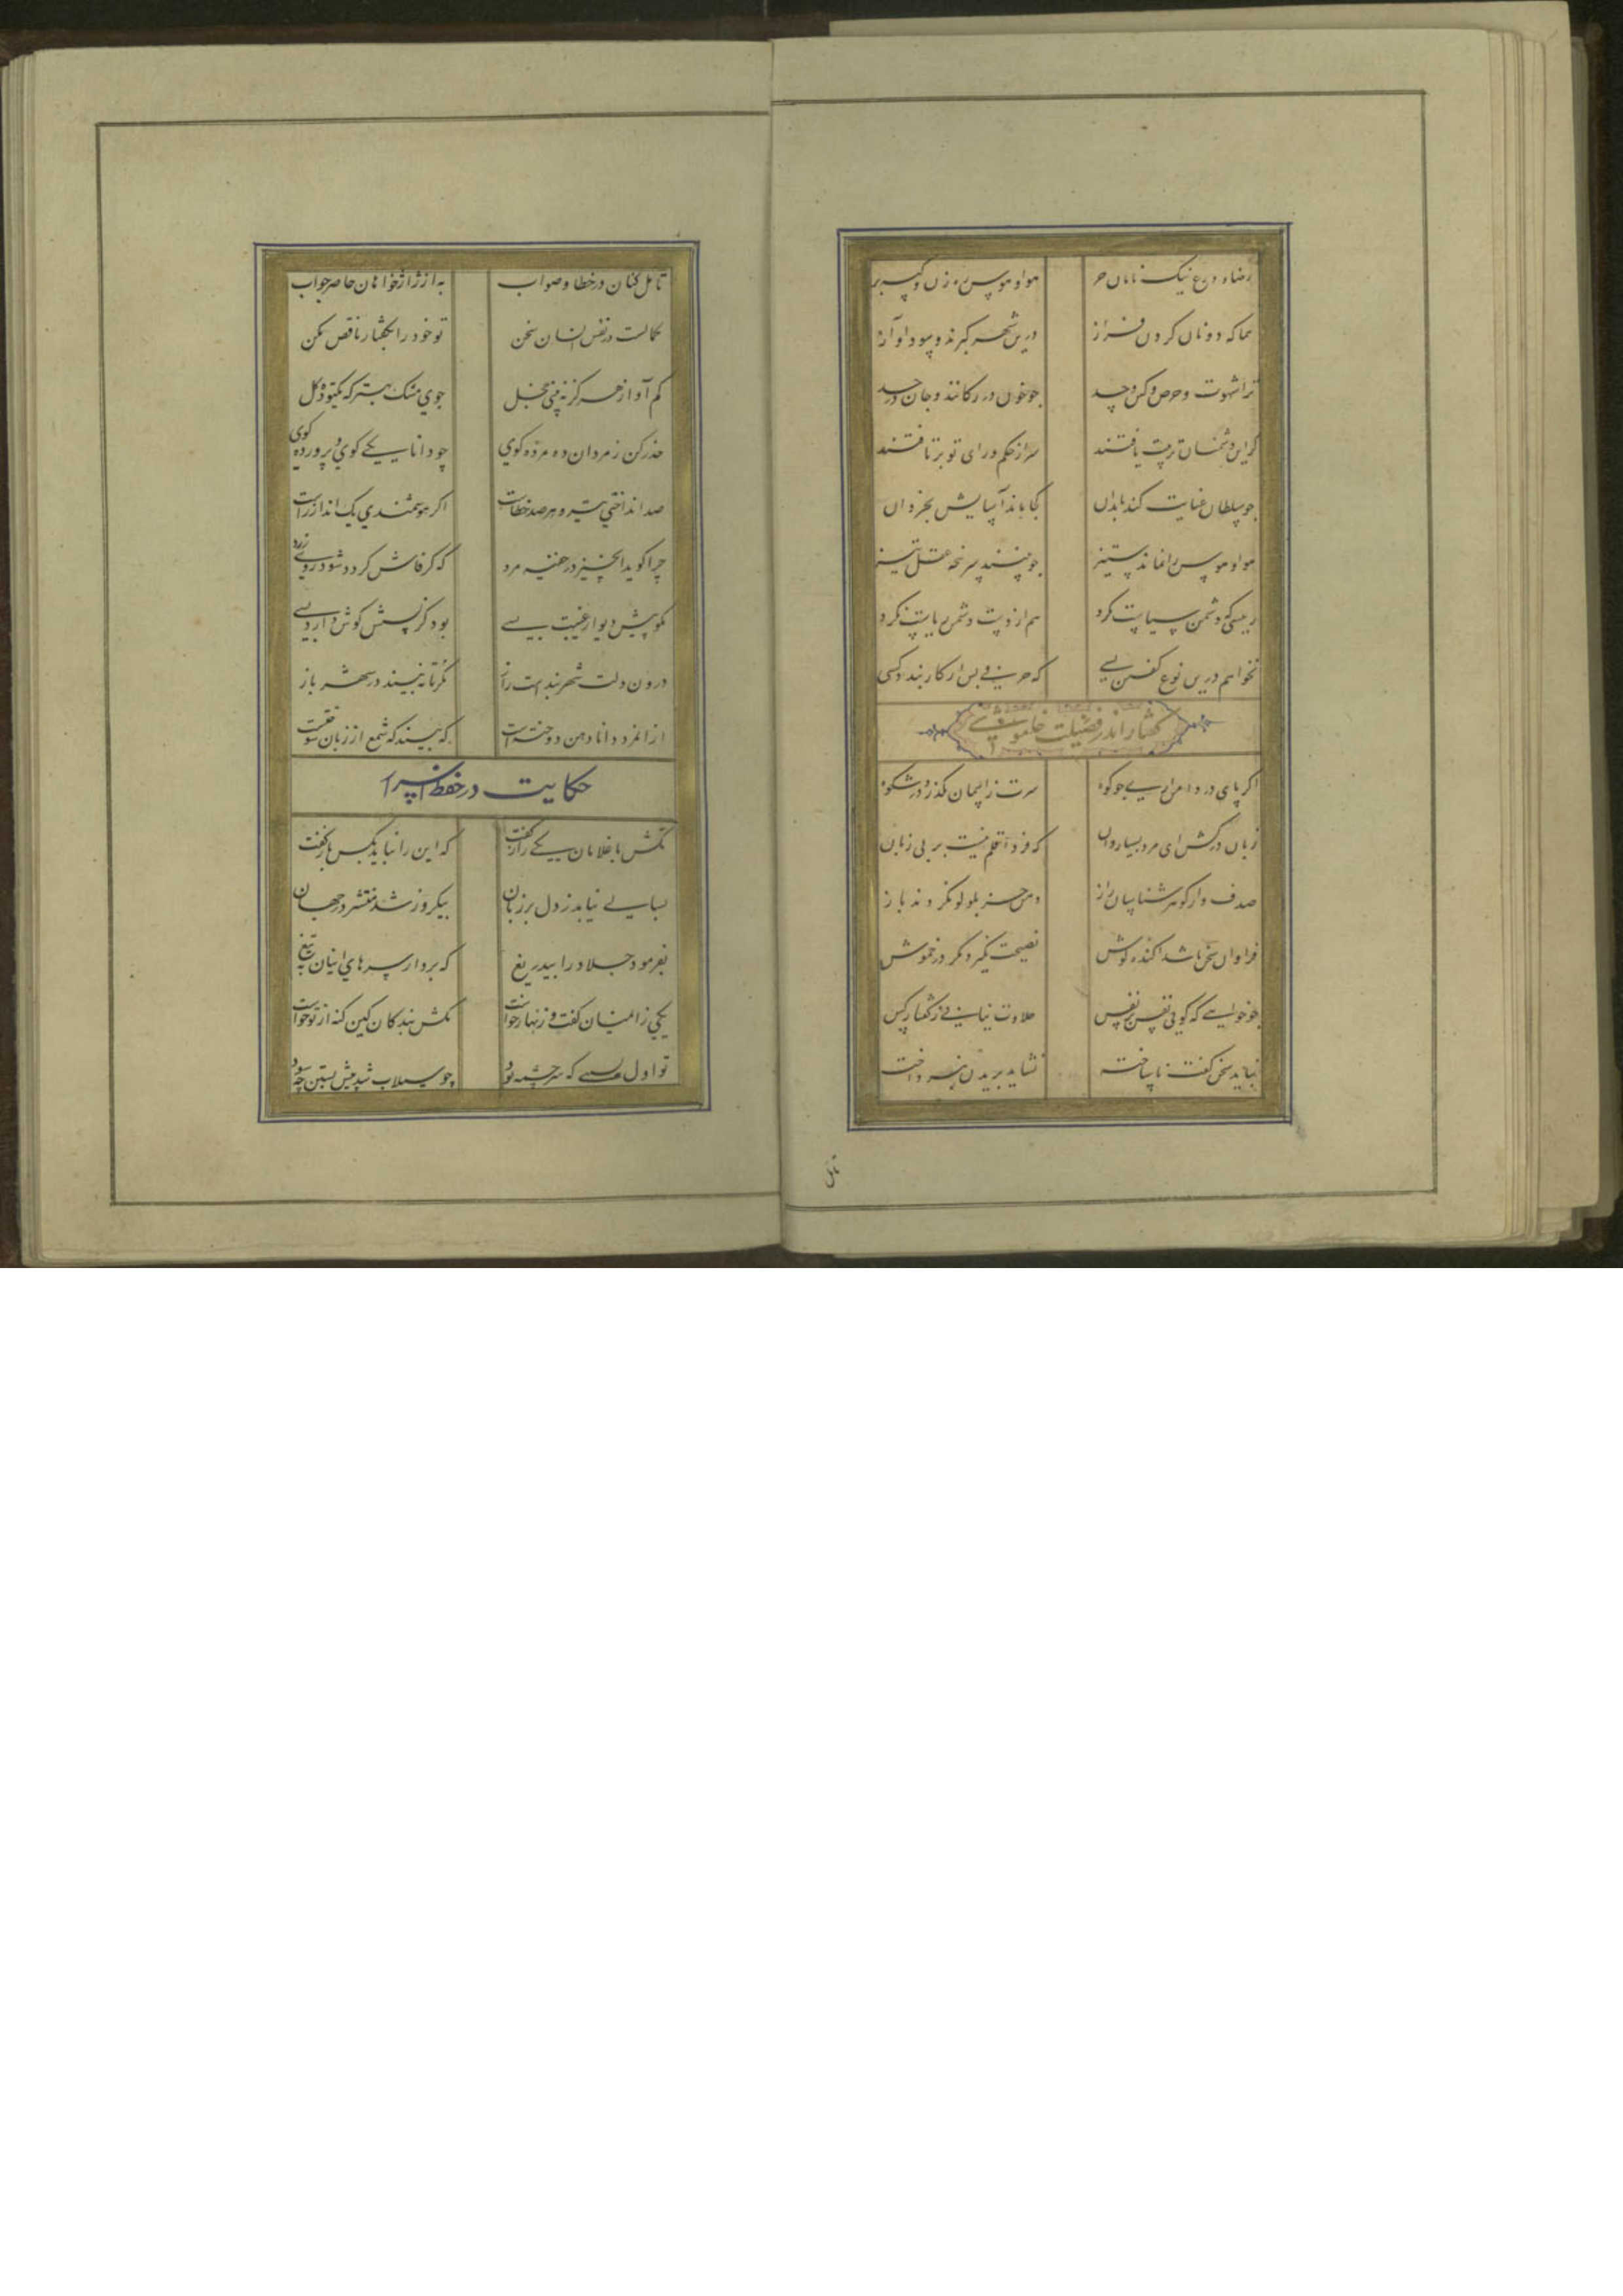 رضا و ورع نیک نامان حر هوا و هوس رهزن و کیسه بر
همانا که دونان گردن فراز درین شهر کبرند و سودا و آز
ترا شهوت و حرص و کین و حسد چو خون در رگانند و جان در جسد
گر این دشمنان تربیت یافتند سر از حکم و رای تو برتافتند
چو سلطان عنایت کند با بدان کجا ماند آسایش بخردان
هوا و هوس را نماند ستیز چو بینند سرپنجه عقل تیز
رییسی که دشمن سیاست نکرد هم از دست دشمن ریاست نکرد
نخواهم درین نوع گفتن بسی که حرفی بس ار کار بندد کسی
گفتار اندر فضیلت خاموشی
اگر پای در دامن آری چو کوه سرت ز آسمان بگذرد در شکوه
زبان درکش ای مرد بسیاردان که فردا قلم نیست بر بی زبان
صدف وار گوهر شناسان راز دهن جز بلولو نکردند باز
فراوان سخن باشد آکنده گوش نصیحت نگیرد مگر در خموش
چو خواهی که گویی نفس بر نفس حلاوت نیابی ز گفتار کس
نباید سخن گفت ناساخته نشاید بریدن نینداخته
تامل
تامل کنان در خطا و صواب به از ژاژخایان حاضر جواب
کمالست در نفس انسان سخن تو خود را بگفتار ناقص مکن
کم آواز هرگز نبینی خجل جوی مشک بهتر که یکتوده گل
حذر کن ز مردان ده مرده گوی چو دانا یکی گوی و پرورده گوی
صد انداختی تیر و هر صد خطاست اگر هوشمندی یک انداز راست
چرا گوید آنچیز در خفیه مرد که گر فاش گردد شود روی زرد
مگو پیش دیوار غیبت بسی بود کز پسش گوش دارد کسی
درون دلت شهربندست راز نگر تا نبیند در شهر باز
از آن مرد دانا دهن دوختست که بیند که شمع از زبان سوختست
حکایت در حفظ اسرار
تکش با غلامان یکی راز گفت که این را نباید بکس باز گفت
بسالی نیامد ز دل بر زبان بیکروز شد منتشر در جهان
بفرمود جلاد را بیدریغ که بردار سرهای اینان به تیغ
یکی زآن میان گفت و زنهار خواست مکش بندگان کین گنه از تو خواست
تو اول نبستی که سرچشمه بود چو سیلاب شد پیش بستن چه سود